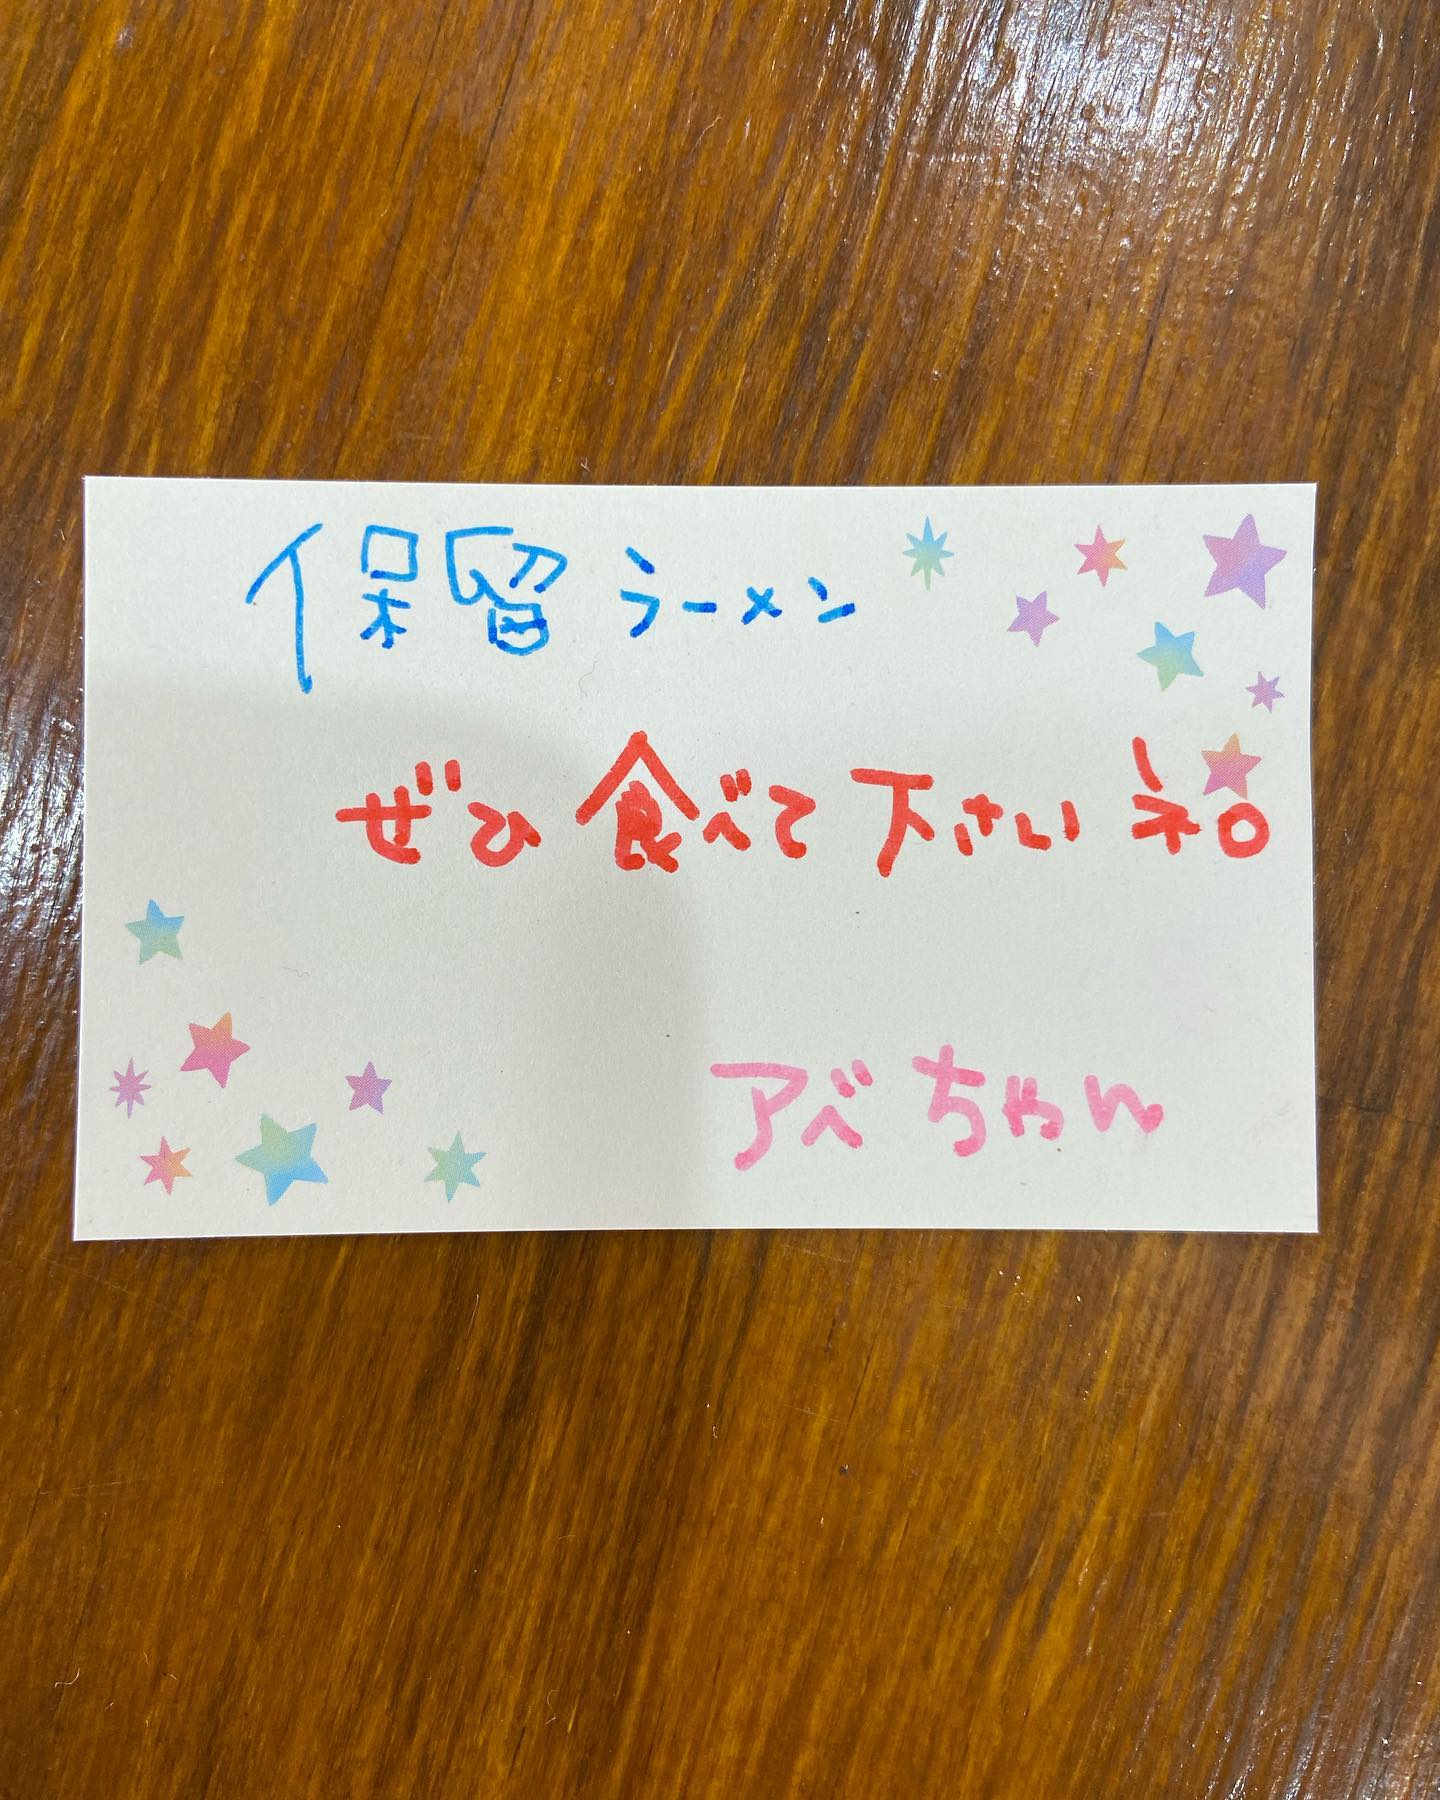 保留ラーメン
ぜひ食べて下さいネ。
アベちゃん